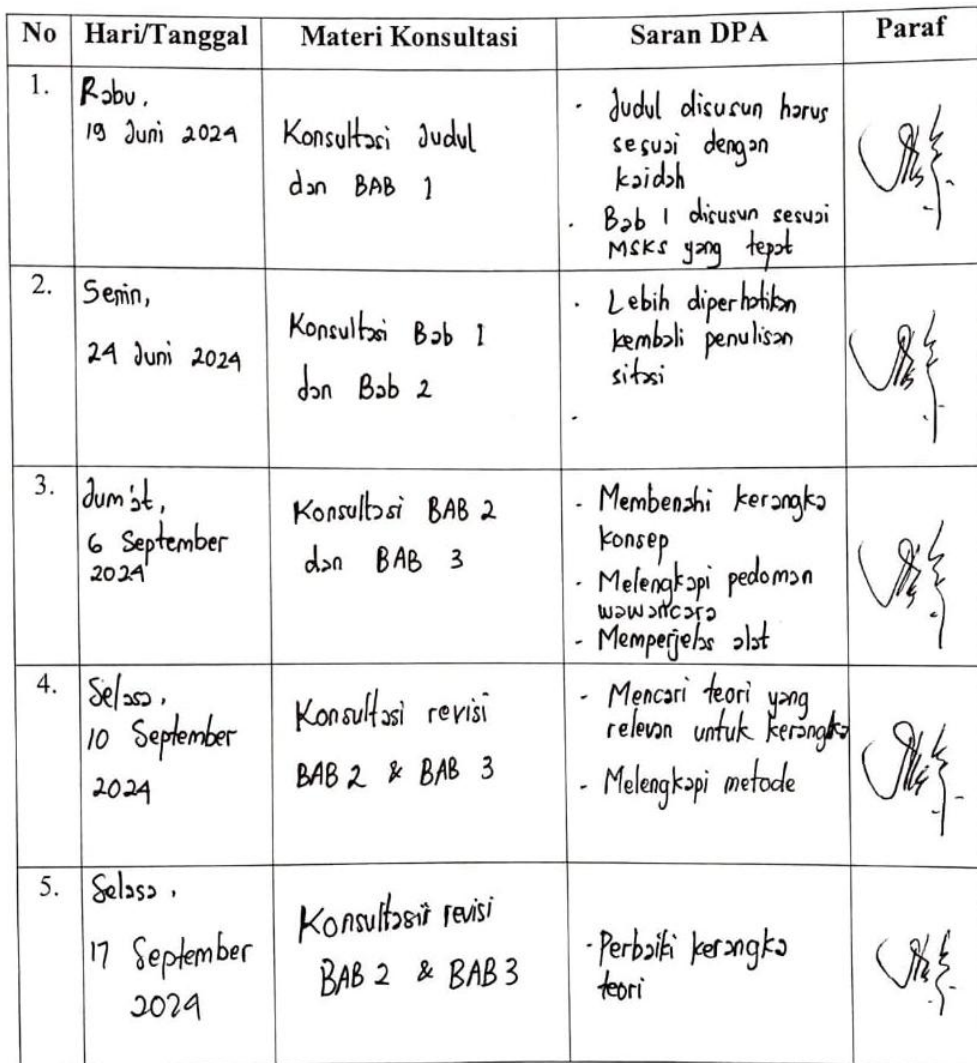 No Hari/Tanggal Materi Konsultasi Saran DPA Paraf
1. Rabu,
19 Juni 2024
Konsultasi Judul
dan BAB 1
- Judul disusun harus
sesuai dengan
kaidah
- Bab 1 disusun sesuai
MSKS yang tepat
2. Senin,
24 Juni 2024
Konsultasi Bab 1
dan Bab 2
- Lebih diperhatikan
kembali penulisan
sitasi
-
3. Jum'at,
6 September
2024
Konsultasi BAB 2
dan BAB 3
- Membenahi kerangka
konsep
- Melengkapi pedoman
wawancara
- Memperjelas alat
4. Selasa,
10 September
2024
Konsultasi revisi
BAB 2 & BAB 3
- Mencari teori yang
relevan untuk kerangka
- Melengkapi metode
5. Selasa,
17 September
2024
Konsultasi revisi
BAB 2 & BAB 3
- Perbaiki kerangka
teori